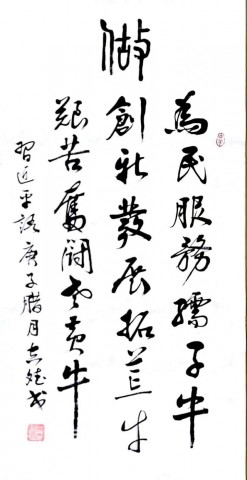 做
為民服務孺子牛
創新發展拓荒牛
艱苦奮鬥老黃牛
習近平語庚子腊月志斌書